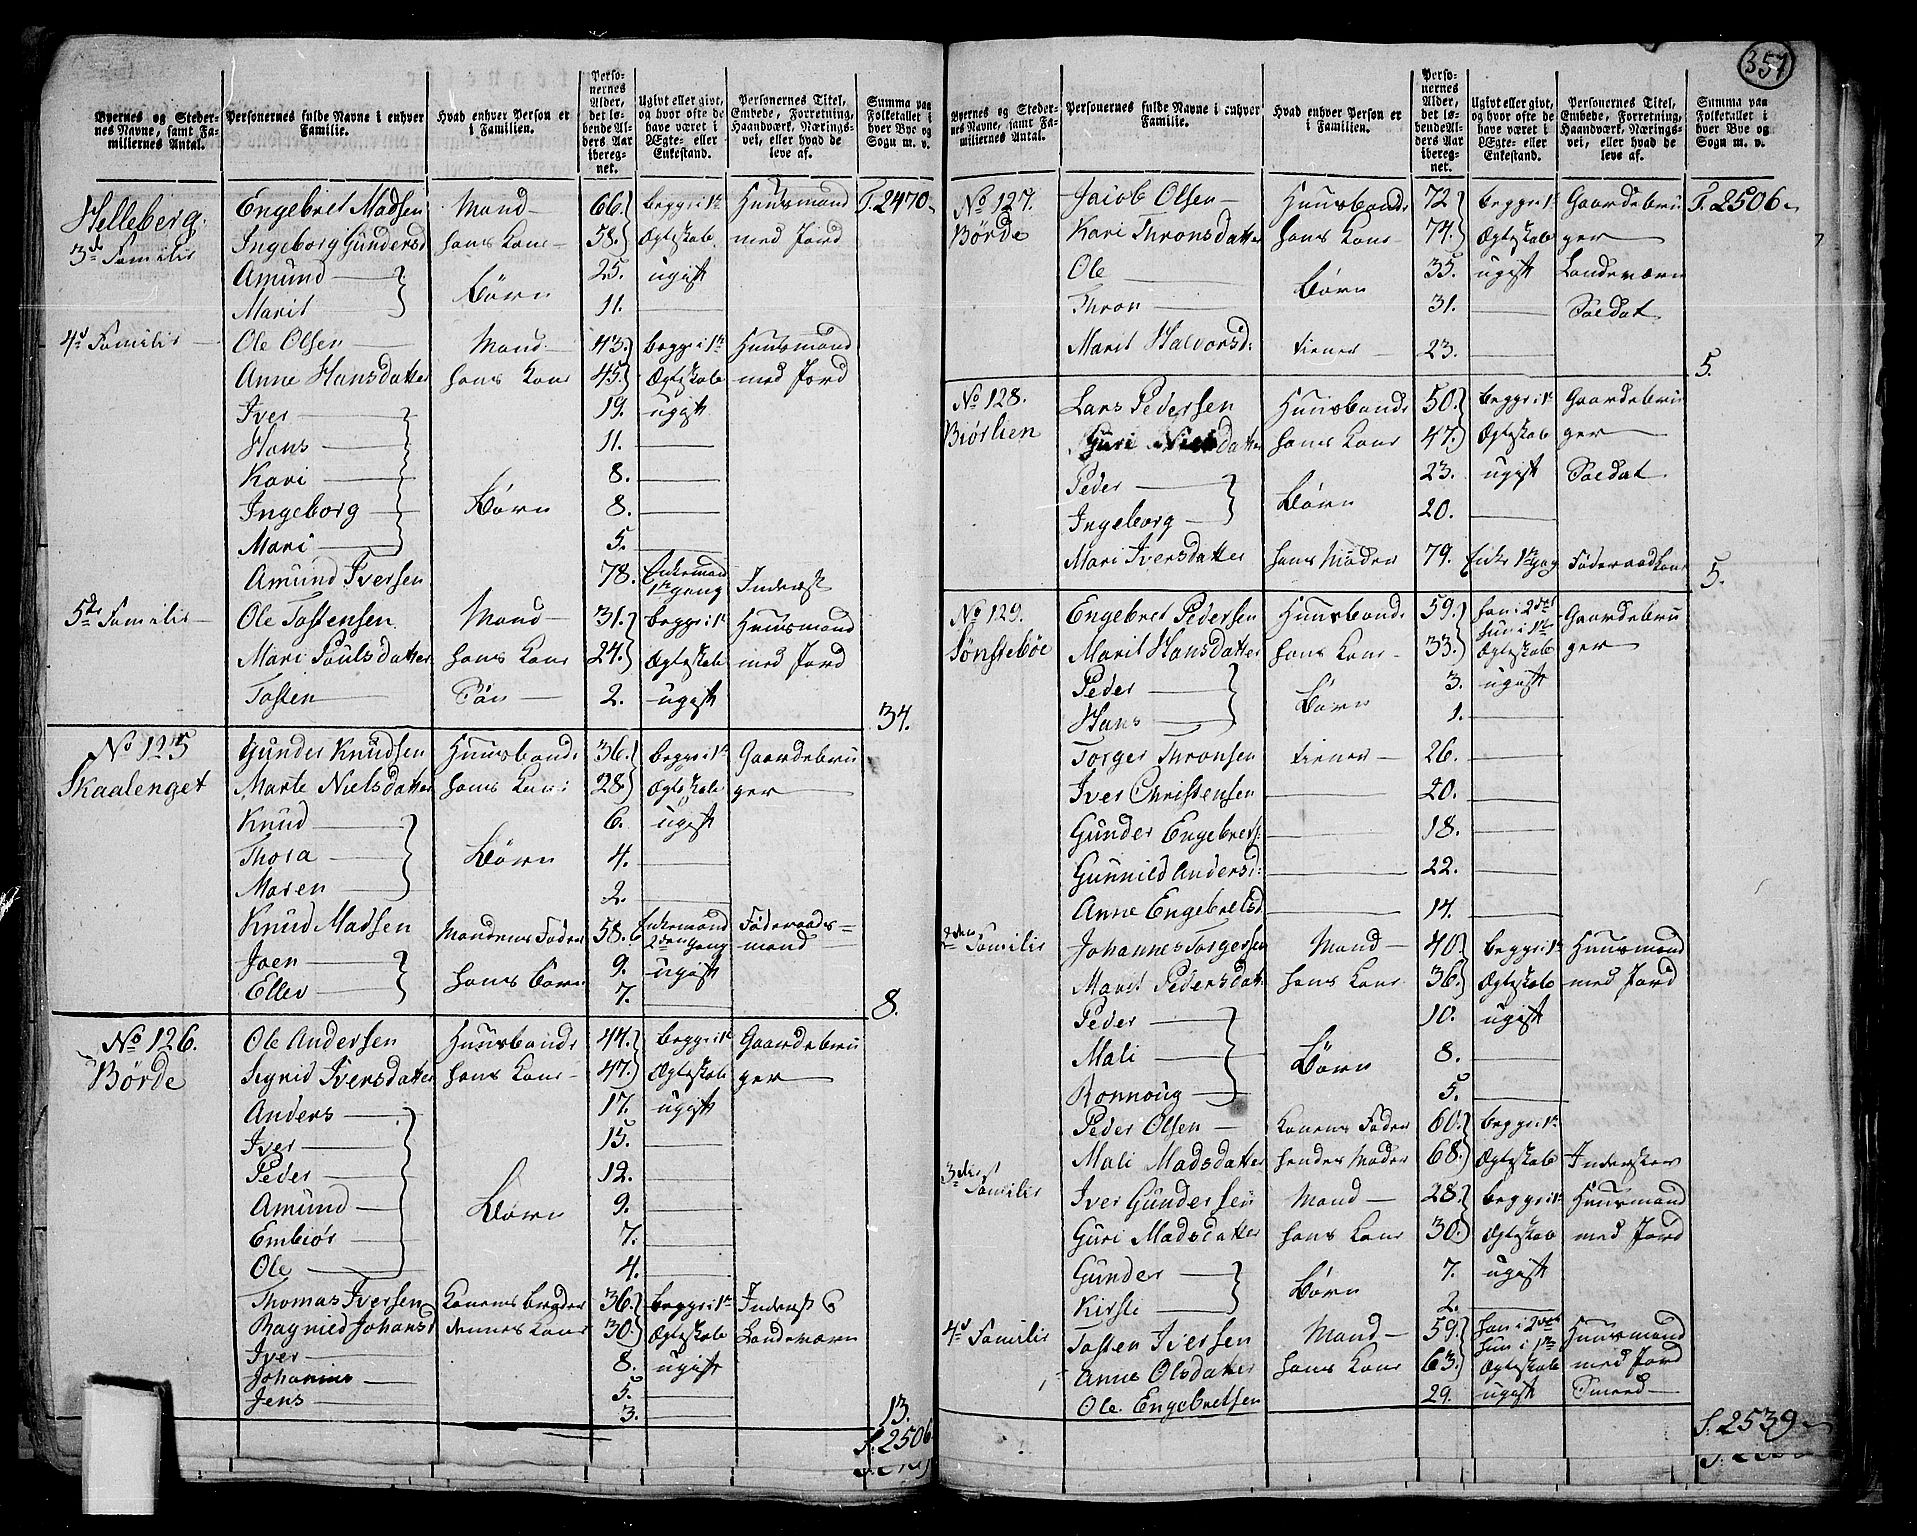 351
Byernes og Steder-
nes Navne, samt Fa-
miliernes Antal.
Personernes fulde Navne i enhver
Familie.
Hvad enhver Person er
i Familien.
Perso-
nernes
Alder,
det lø-
bende Al-
ders Aar
iberegnet.
Ugivt eller givt,
og hvor ofte de
have været i
Ægte- eller
Enkestand.
Personernes Titel,
Embede, Forretning,
Haandværk, Nærings-
vei, eller hvad de
leve af.
Summa paa
Folketallet i
hver Bye og
Sogn m. v.
Helleberg. Engebret Madsen Mand 66. begge i 1te Huusmand T. 2470
3de Familie Ingeborg Gundersd hans Kone 58. Ægteskab med Jord
Amund 25. ugift
Marit Børn 11.
4de Familie Ole Olsen Mand 43. begge i 1te Huusmand
Anne Hansdatter hans Kone 45. Ægteskab med Jord
Iver 19. ugift
Hans 11.
Kari 8.
Ingeborg Børn 8.
Mari 5.
Amund Iversen 78. Enkemand 1te gang Inderst
5te Familie Ole Tostensen Mand 31. begge i 1te Huusmand
Mari Poulsdatter hans Kone 24. Ægteskab med Jord
Tosten Søn 2. ugift
34.
No 125 Gunder Knudsen Huusbonde 36. begge i 1te Gaardebru
Skaalenget Marte Nielsdatter hans Kone 28. Ægteskab ger
Knud 6. ugift
Thora Børn 4.
Maren 2.
Knud Madsen Mandens Fader 58. Enkemand 2den gang Føderaads-
mand
Joen 9. ugift
Ellev hans Børn 7.
8.
No 126. Ole Andersen Huusbonde 44. begge i 1te Gaardebru
Børde Segnid Iversdatter hans Kone 47. Ægteskab ger
Anders 17. ugift
Iver 15.
Peder 12.
Amund Børn 9.
Embiør 7.
Ole 4.
Thomas Iversen Konens broder 36. begge i 1te Inderst
Ragnild Johansd dennes Kone 30. Ægteskab Landeværn
Iver 8. ugift
Johannes 5.
Jens 3.
13.
S. 2506
Byernes og Steder-
nes Navne, samt Fa-
miliernes Antal.
Personernes fulde Navne i enhver
Familie.
Hvad enhver Person er
i Familien.
Perso-
nernes
Alder,
det lø-
bende Al-
ders Aar
iberegnet.
Ugivt eller givt,
og hvor ofte de
have været i
Ægte- eller
Enkestand.
Personernes Titel,
Embede, Forretning,
Haandværk, Nærings-
vei, eller hvad de
leve af.
Summa paa
Folketallet i
hver Bye og
Sogn m. v.
No 127. Jacob Olsen Huusbonde 72 begge i 1te Gaardebru T. 2506
Børde Kari Thronsdatter hans Kone 74. Ægteskab ger
Ole 35. ugift Landeværn
Thron Børn 31. Soldat
Marit Halvorsd: tiener 23.
5.
No 128. Lars Pedersen Huusbonde 50. begge i 1te Gaardebru
Biørlien Guri Nielsdatter hans Kone 47. Ægteskab ger
Peder 23. ugift Soldat
Ingeborg Børn 20.
Mari Iversdatter hans Moder 79. Enke 1te Gang Føderaadkone
5.
No 129. Engebret Pedersen Huusbonde 59. han i 2det Gaardebru
hun i 1te
Sønstebøe Marit Hansdatter hans Kone 33. Ægteskab ger
Peder 3. ugift
Hans Børn 1.
Torger Thronsen tiener 26.
Iver Christensen 20.
Gunder Engebrets: 18.
Gunnild Andersd: 22.
Anne Engebretsd 14.
2den Familie Johannes Torgersen Mand 40. begge i 1te Huusmand
Marit Pedersdat: hans Kone 36. Ægteskab med Jord
Peder 10. ugift
Mali Børn 8.
Ronnoug 5.
Peder Olsen Konens Fader 60. begge i 1te
Mali Madsdatter hendes Moder 68. Ægteskab Indersker
3die Familie Iver Gundersen Mand 28. begge i 1te Huusmand
Guri Madsdatter hans Kone 30. Ægteskab med Jord
Gunder 7. ugift
Kirsti Børn 2.
4de Familie Tosten Iversen Mand 59. han i 2det Huusmand
hun i 1te
Anne Olsdatter hans Kone 63. Ægteskab med Jord
Ole Engebretsen 29. ugift Smed
S. 2539